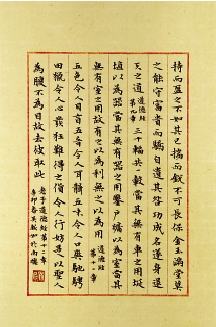 持而盈之不如其已揣而銳不可長保金玉滿堂莫
之能守富貴而驕自遺其咎功成名遂身退
天之道 道德經第九章 三十輻共一轂當其無有車之用埏
埴以為器當其無有器之用鑿戶牖以為室當其
無有室之用故有之以為利無之以為用 道德經第十一章
五色令人目盲五音令人耳聾五味令人口爽馳騁
田獵令人心發狂難得之貨令人行妨是以聖人
為腹不為目故去彼取此 道德經第十二章